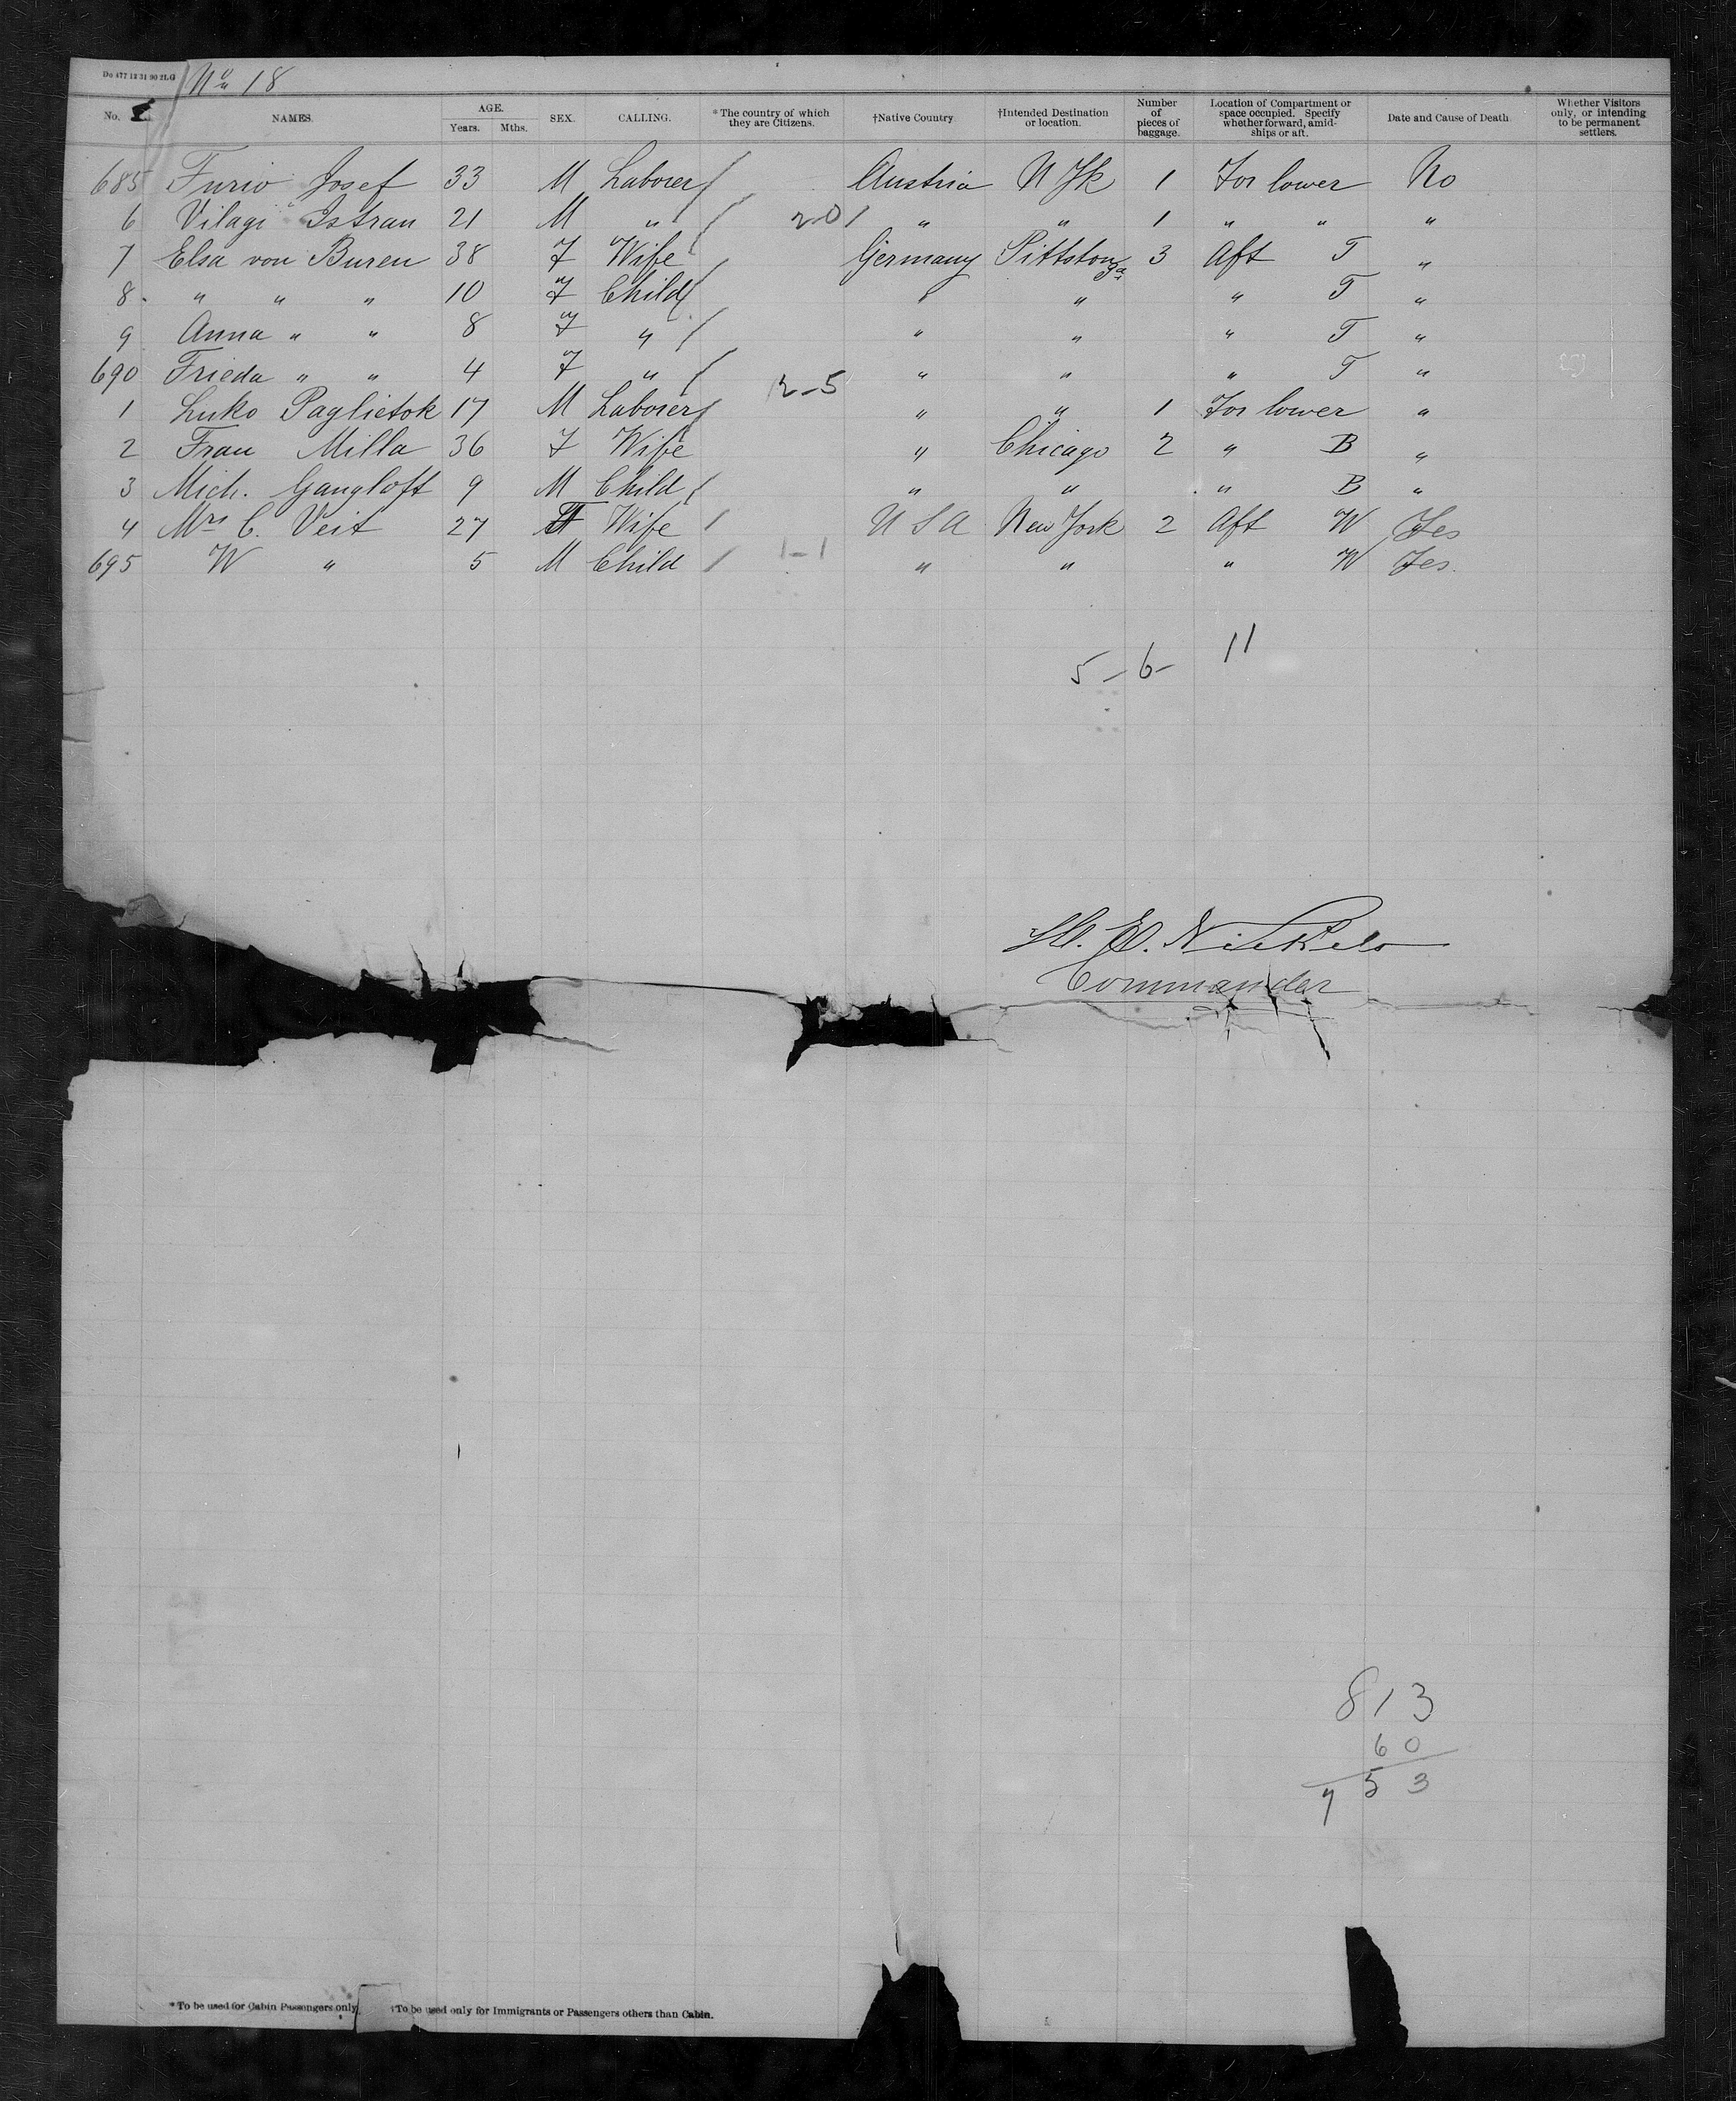 Do 477 12 31 90 2LG No 18
No. NAMES. AGE. Years. Mths. SEX. CALLING. *The country of which they are Citizens. †Native Country †Intended Destination or location. Number of pieces of baggage. Location of Compartment or space occupied. Specify whether forward, amidships or aft. Date and Cause of Death. Whether Visitors only, or intending to be permanent settlers.
685 Furio Josef 33 M Laborer / Austria N Yk 1 For lower No
6 Vilagi Istran 21 M " / 2-0 / " " 1 " " "
7 Elsa von Buren 38 F Wife Germany Pittston Pa 3 Aft T "
8 " " " 10 F Child / " " " T "
9 Anna " " 8 F " / " " " T "
690 Frieda " " 4 F " / " " " T "
1 Luko Paglietok 17 M Laborer / 2-5 " " 1 For lower "
2 Frau Milla 36 F Wife " Chicago 2 " B "
3 Mich. Gangloft 9 M Child / " " " B "
4 Mrs C. Veit 27 F Wife / U S A New York 2 Aft W Yes
695 W " 5 M Child / 1-1 " " " W Yes.
5-6- 11
H. E. Nickels
Commander
813
60
753
*To be used for Cabin Passengers only. †To be used only for Immigrants or Passengers others than Cabin.